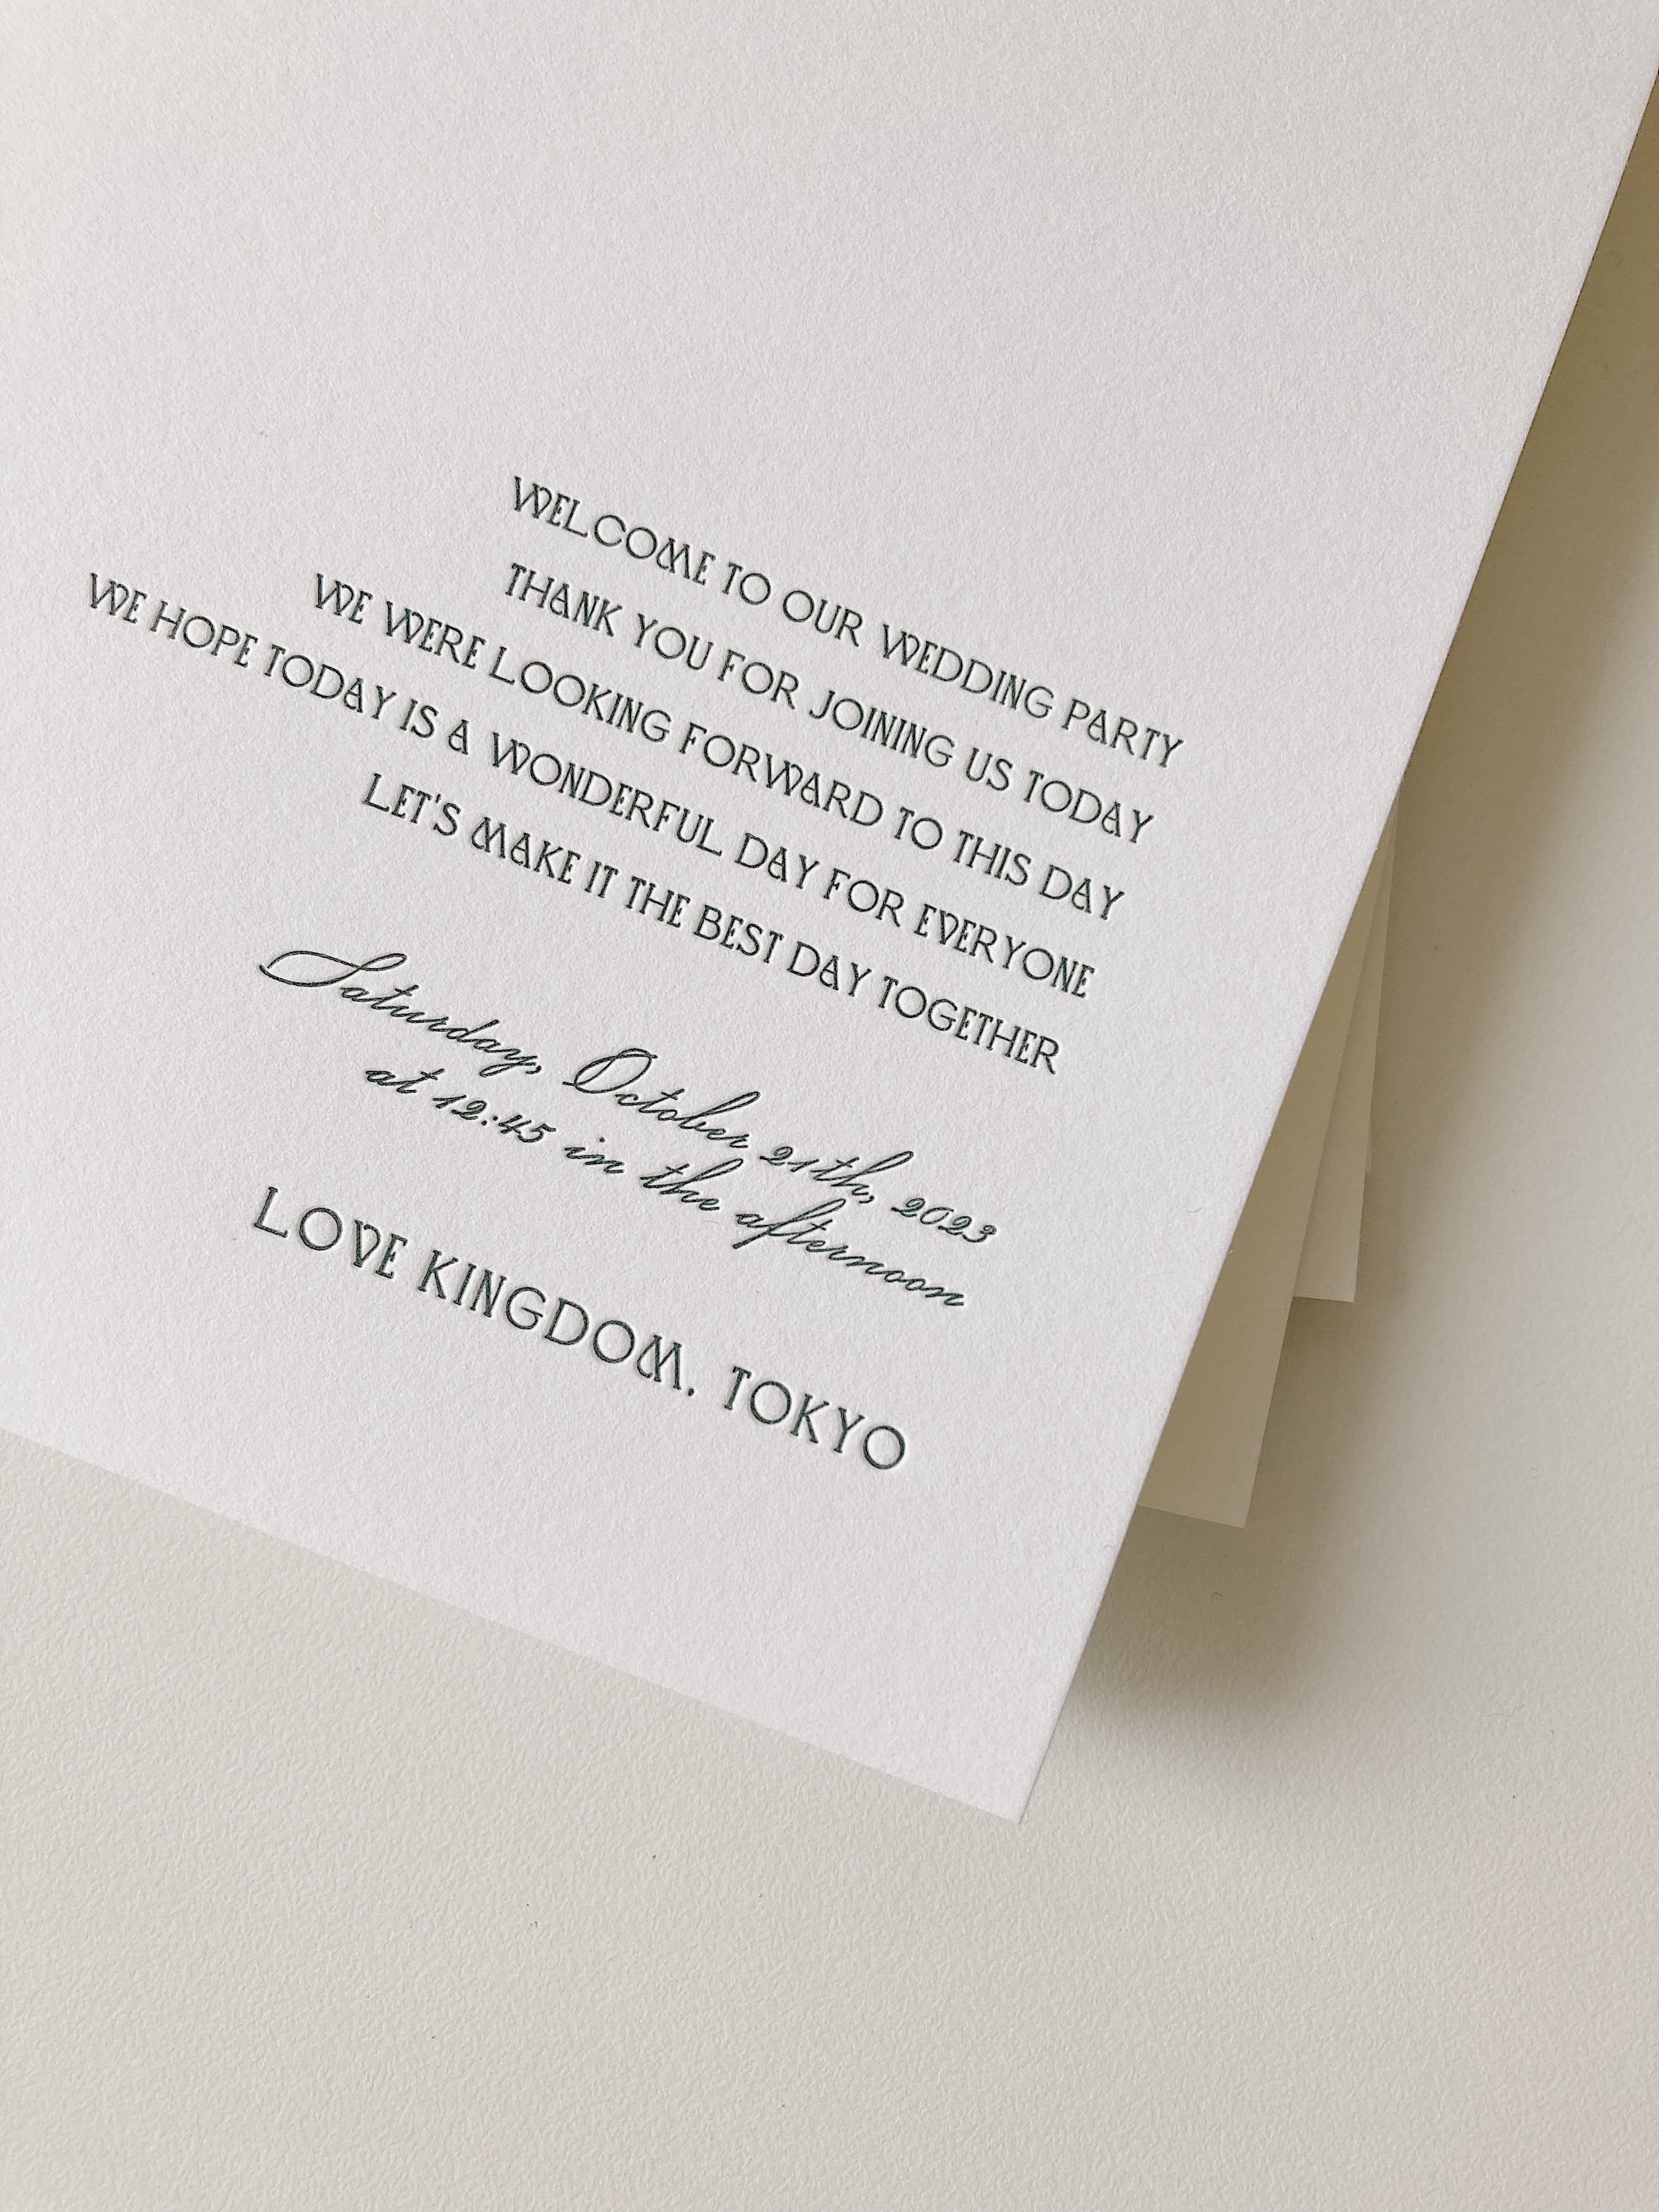 WELCOME TO OUR WEDDING PARTY
THANK YOU FOR JOINING US TODAY
WE WERE LOOKING FORWARD TO THIS DAY
WE HOPE TODAY IS A WONDERFUL DAY FOR EVERYONE
LET'S MAKE IT THE BEST DAY TOGETHER
Saturday, October 21th, 2023
at 12:45 in the afternoon
LOVE KINGDOM. TOKYO